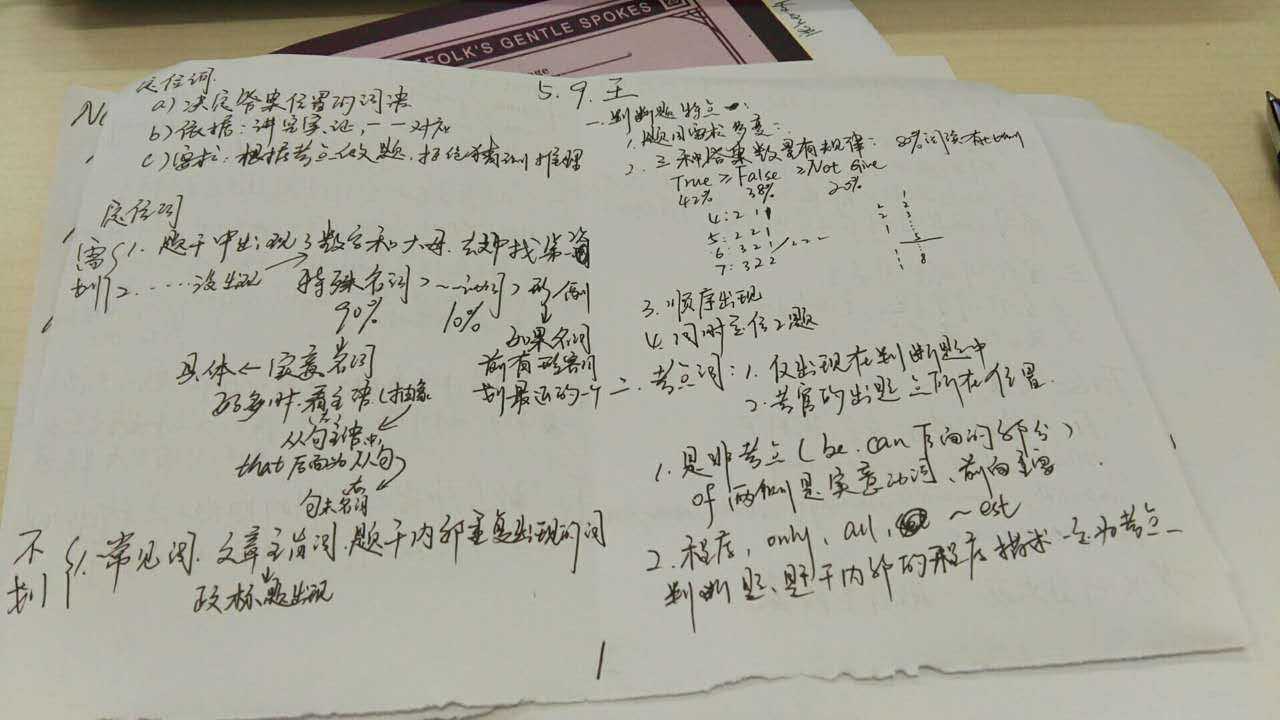 FOLK'S GENTLE SPOKES
定位词
a) 决定答案位置的词语
b) 依据：讲究实证，一一对应
c) 要求：根据考点做题，拒绝猜测推理
定位词
需划
1. 题干中出现了数字和大写，去文中找
2. ……没出现 特殊名词>～动词>形/副
90% 10%
如果名词
前有形容词
划最近的一个
具体←实意名词
名词多时看主语（抽象
从句主语中
that后面为从句
句末名词
不划
1. 常见词、文章主旨词、题干内部重复出现的词
或标题出现
5.9.王
一、判断题特点：
1. 题目要求多变：
2. 三种答案数量有规律：
True ≥ False ≥ Not Give
42% 38% 20%
4: 2 1 1
5: 2 2 1
6: 3 2 1 / 2 2 2
7: 3 2 2
3. 顺序出现
4. 同时定位2题
二、考点词：1. 仅出现在判断题中
2. 考官的出题点所在位置
1. 是非考点（be. can后面的部分）
of 两侧是实意动词、前面主语
2. 程度，only，all， ～est
判断题、题干内部的程度描述一定为考点